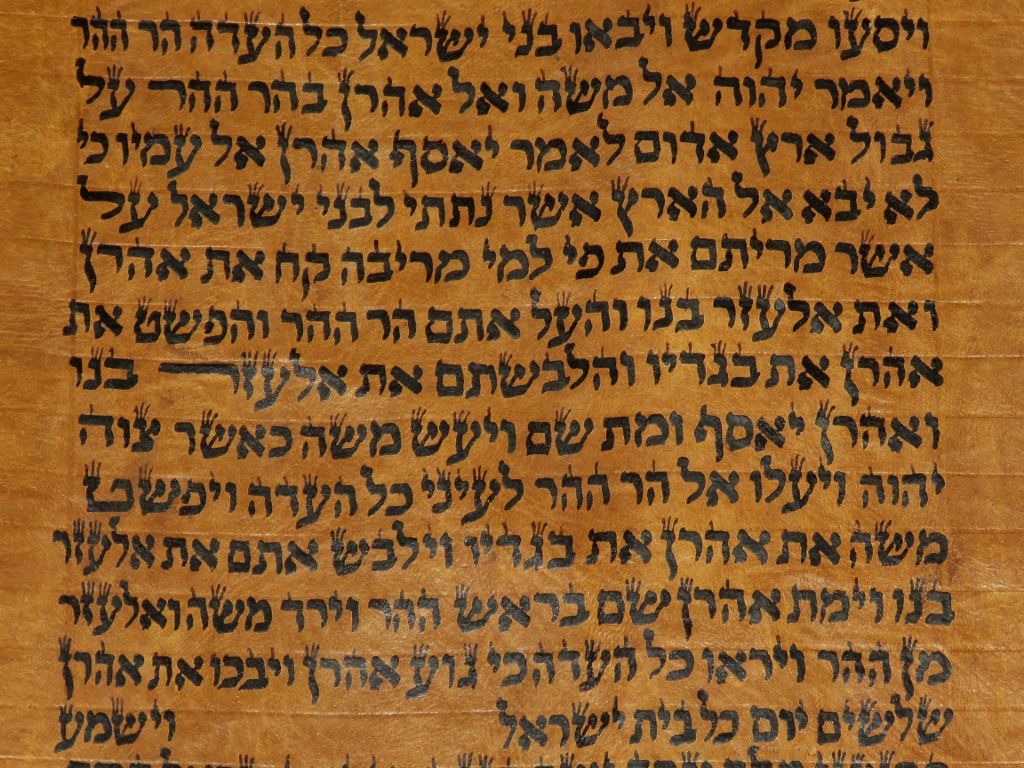 ויסעו מקדש ויבאו בני ישראל כל העדה הר ההר
ויאמר יהוה אל משה ואל אהרן בהר ההר על
גבול ארץ אדום לאמר יאסף אהרן אל עמיו כי
לא יבא אל הארץ אשר נתתי לבני ישראל על
אשר מריתם את פי למי מריבה קח את אהרן
ואת אלעזר בנו והעל אתם הר ההר והפשט את
אהרן את בגדיו והלבשתם את אלעזר בנו
ואהרן יאסף ומת שם ויעש משה כאשר צוה
יהוה ויעלו אל הר ההר לעיני כל העדה ויפשט
משה את אהרן את בגדיו וילבש אתם את אלעזר
בנו וימת אהרן שם בראש ההר וירד משה ואלעזר
מן ההר ויראו כל העדה כי גוע אהרן ויבכו את אהרן
שלשים יום כל בית ישראל וישמע